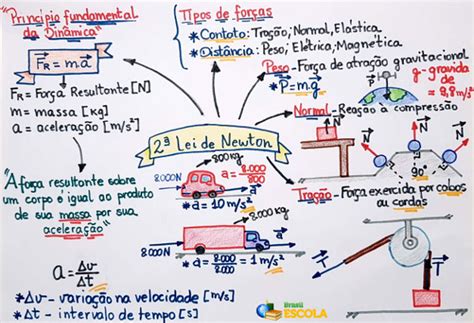 "Princípio fundamental
da Dinâmica"
FR = m.a
FR = Força Resultante [N]
m = massa [kg]
a = aceleração [m/s²]
"A força resultante sobre
um corpo é igual ao produto
de sua massa por sua
aceleração"
a = Δv
Δt
*Δv - variação na velocidade [m/s]
*Δt - intervalo de tempo [s]
Tipos de forças
*Contato: Tração, Normal, Elástica
*Distância: Peso, Elétrica, Magnética
2ª Lei de Newton
Peso - Força de atração gravitacional
*P = m.g
P
g - gravidade
= 9,8 m/s²
Normal - Reação à compressão
N
N
N
N
90°
Tração - Força exercida por cabos
ou cordas
T
T
800 kg
8000N
a
a = 8.000
800
*a = 10 m/s²
8.000 kg
8.000N
a
*a = 8.000 = 1 m/s²
8.000
Brasil
ESCOLA